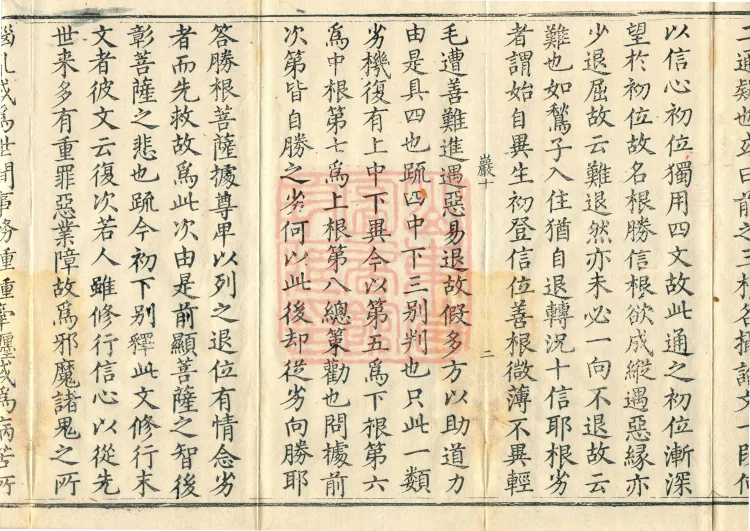 二通疑也來曰前之三根各指論文一段何
以信心初位獨用四文故此通之初位漸深
望於初位故名根勝信根欲成縱遇惡緣亦
少退屈故云難退然亦未必一向不退故云
難也如鶖子入住猶自退轉況十信耶根劣
者謂始自異生初登信位善根微薄不異輕
巖十
二
毛遭善難進遇惡易退故假多方以助道力
由是具四也䟽四中下三別判也只此一類
劣機復有上中下異今以第五爲下根第六
爲中根第七爲上根第八總策勸也問據前
次第皆自勝之劣何以此後却從劣向勝耶
答勝根菩薩據尊卑以列之退位有情念劣
者而先救故爲此次由是前顯菩薩之智後
彰菩薩之悲也䟽今初下別釋此文修行末
文者彼文云復次若人雖修行信心以從先
世来多有重罪惡業障故爲邪魔諸鬼之所
惱亂或爲世間事務種種牽纏或爲病苦所